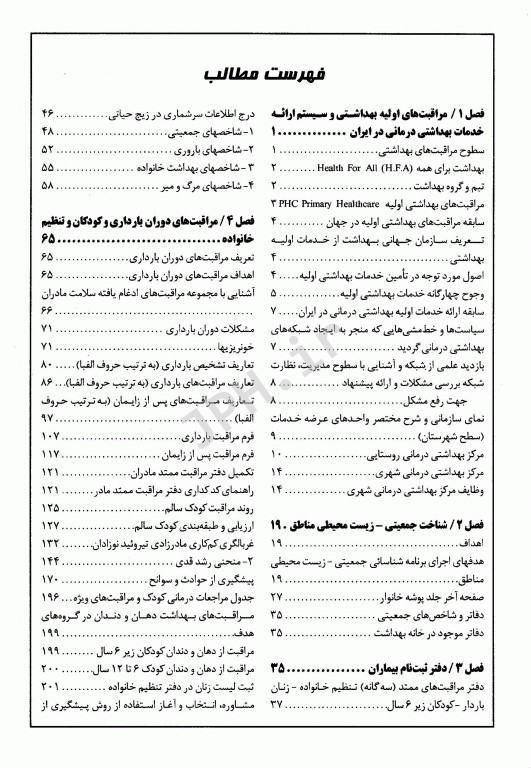 فهرست مطالب
فصل ۱ / مراقبت‌های اولیه بهداشتی و سیستم ارائه
خدمات بهداشتی درمانی در ایران .............. ۱
سطوح مراقبت‌های بهداشتی .............. ۱
بهداشت برای همه Health For All (H.F.A) ........ ۲
تیم و گروه بهداشت .............. ۲
مراقبت‌های بهداشتی اولیه PHC Primary Healthcare ۳
سابقه مراقبت‌های بهداشتی اولیه در جهان ........ ۴
تعریف سازمان جهانی بهداشت از خدمات اولیه
بهداشتی .............. ۴
اصول مورد توجه در تأمین خدمات بهداشتی اولیه ..... ۴
وجوح چهارگانه خدمات بهداشتی اولیه .......... ۵
سابقه ارائه خدمات اولیه بهداشتی درمانی در ایران .... ۷
سیاست‌ها و خط‌مشی‌هایی که منجر به ایجاد شبکه‌های
بهداشتی درمانی گردید .............. ۷
بازدید علمی از شبکه و آشنایی با سطوح مدیریت، نظارت
شبکه بررسی مشکلات و ارائه پیشنهاد .......... ۸
جهت رفع مشکل .............. ۸
نمای سازمانی و شرح مختصر واحدهای عرضه خدمات
(سطح شهرستان) .............. ۹
مرکز بهداشتی درمانی روستایی .............. ۱۰
مرکز بهداشتی درمانی شهری .............. ۱۴
وظایف مرکز بهداشتی درمانی شهری .......... ۱۴
فصل ۲ / شناخت جمعیتی - زیست محیطی مناطق . ۱۹
اهداف .............. ۱۹
هدفهای اجرای برنامه شناسائی جمعیتی - زیست محیطی
مناطق .............. ۱۹
صفحه آخر جلد پوشه خانوار .............. ۲۷
دفاتر و شاخص‌های جمعیتی .............. ۳۵
دفاتر موجود در خانه بهداشت .............. ۳۵
فصل ۳ / دفتر ثبت‌نام بیماران .............. ۳۵
دفتر مراقبت‌های ممتد (سه گانه) تنظیم خانواده - زنان
باردار - کودکان زیر ۶ سال .............. ۳۷
درج اطلاعات سرشماری در زیج حیاتی ............ ۴۶
۱- شاخصهای جمعیتی .............. ۴۸
۲- شاخصهای باروری .............. ۵۲
۳- شاخصهای بهداشت خانواده .............. ۵۵
۴- شاخصهای مرگ و میر .............. ۵۸
فصل ۴ / مراقبت‌های دوران بارداری و کودکان و تنظیم
خانواده .............. ۶۵
تعریف مراقبت‌های دوران بارداری .............. ۶۵
اهداف مراقبت‌های دوران بارداری .............. ۶۵
آشنایی با مجموعه مراقبت‌های ادغام یافته سلامت مادران
.............. ۶۶
مشکلات دوران بارداری .............. ۷۱
خونریزیها .............. ۷۱
تعاریف تشخیص بارداری (به ترتیب حروف الفبا) ... ۸۰
تعاریف مراقبت‌های بارداری (به ترتیب حروف الفبا) .. ۸۶
تعاریف مراقبت‌های پس از زایمان (به ترتیب حروف
الفبا) .............. ۹۷
فرم مراقبت بارداری .............. ۱۰۷
فرم مراقبت پس از زایمان .............. ۱۱۷
تکمیل دفتر مراقبت ممتد مادران .............. ۱۲۱
راهنمای کد کداری دفتر مراقبت ممتد مادر ........ ۱۲۱
روند مراقبت کودک سالم .............. ۱۲۵
ارزیابی و طبقه‌بندی کودک سالم .............. ۱۲۷
غربالگری کم‌کاری مادرزادی تیروئید نوزادان ....... ۱۳۲
۲- منحنی رشد قدی .............. ۱۴۴
پیشگیری از حوادث و سوانح .............. ۱۷۰
جدول مراجعات درمانی کودک و مراقبت‌های ویژه ... ۱۹۶
مراقبت‌های بهداشت دهان و دندان در گروه‌های
هدف .............. ۱۹۹
مراقبت از دهان و دندان کودکان زیر ۶ سال ........ ۱۹۹
مراقبت از دهان و دندان کودک ۶ تا ۱۲ سال ........ ۲۰۰
ثبت لیست زنان در دفتر تنظیم خانواده .......... ۲۰۱
مشاوره، انتخاب و آغاز استفاده از روش پیشگیری از
JPH.ir